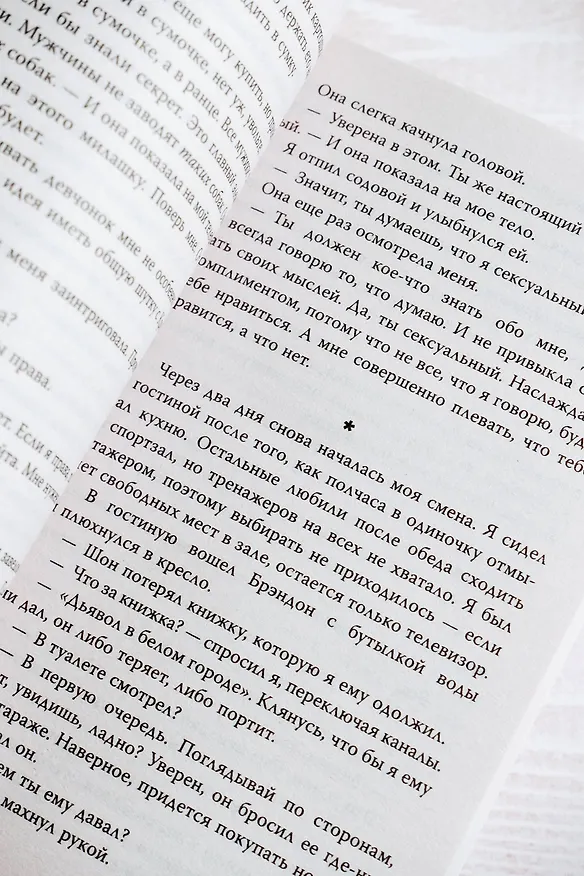 еще могу купить, но
в сумочке, нет уж, уволь
в сумочке, а в ранце. Все мужч
если бы знали секрет. Это главный
Мужчины не заводят таких собак
собак. — И она показала на мой
на этого милашку. Поверь мне,
будет.
девчонок мне не особ
идея иметь общую шутку с
меня заинтриговала.
права.
Если я прав
Мне
Она слегка качнула головой.
— Уверена в этом. Ты же настоящий
ый. — И она показала на мое тело.
Я отпил содовой и улыбнулся ей.
— Значит, ты думаешь, что я сексуальный
Она еще раз осмотрела меня.
— Ты должен кое-что знать обо мне,
всегда говорю то, что думаю. И не привыкла с
ать своих мыслей. Да, ты сексуальный. Наслажда
омплиментом, потому что не все, что я говорю, буд
ебе нравиться. А мне совершенно плевать, что теб
равится, а что нет.
*
Через два дня снова началась моя смена. Я сидел
гостиной после того, как полчаса в одиночку отмы-
ал кухню. Остальные любили после обеда сходить
спортзал, но тренажеров на всех не хватало. Я был
тажером, поэтому выбирать не приходилось — если
ет свободных мест в зале, остается только телевизор.
В гостиную вошел Брэндон с бутылкой воды
плюхнулся в кресло.
— Шон потерял книжку, которую я ему одолжил.
— Что за книжка? — спросил я, переключая каналы.
— «Дьявол в белом городе». Клянусь, что бы я ему
и дал, он либо теряет, либо портит.
— В туалете смотрел?
— В первую очередь. Поглядывай по сторонам,
увидишь, ладно? Уверен, он бросил ее где-ни
гараже. Наверное, придется покупать но
ал он.
ем ты ему давал?
махнул рукой.